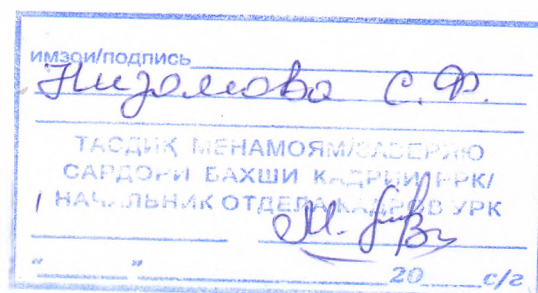 имзои/подпись
Низомова С.Ф.
ТАСДИҚ МЕНАМОЯМ/ЗАВЕРЯЮ
САРДОРИ БАХШИ КАДРИИ РРК/
НАЧАЛЬНИК ОТДЕЛА КАДРОВ УРК
" " 20 с/г